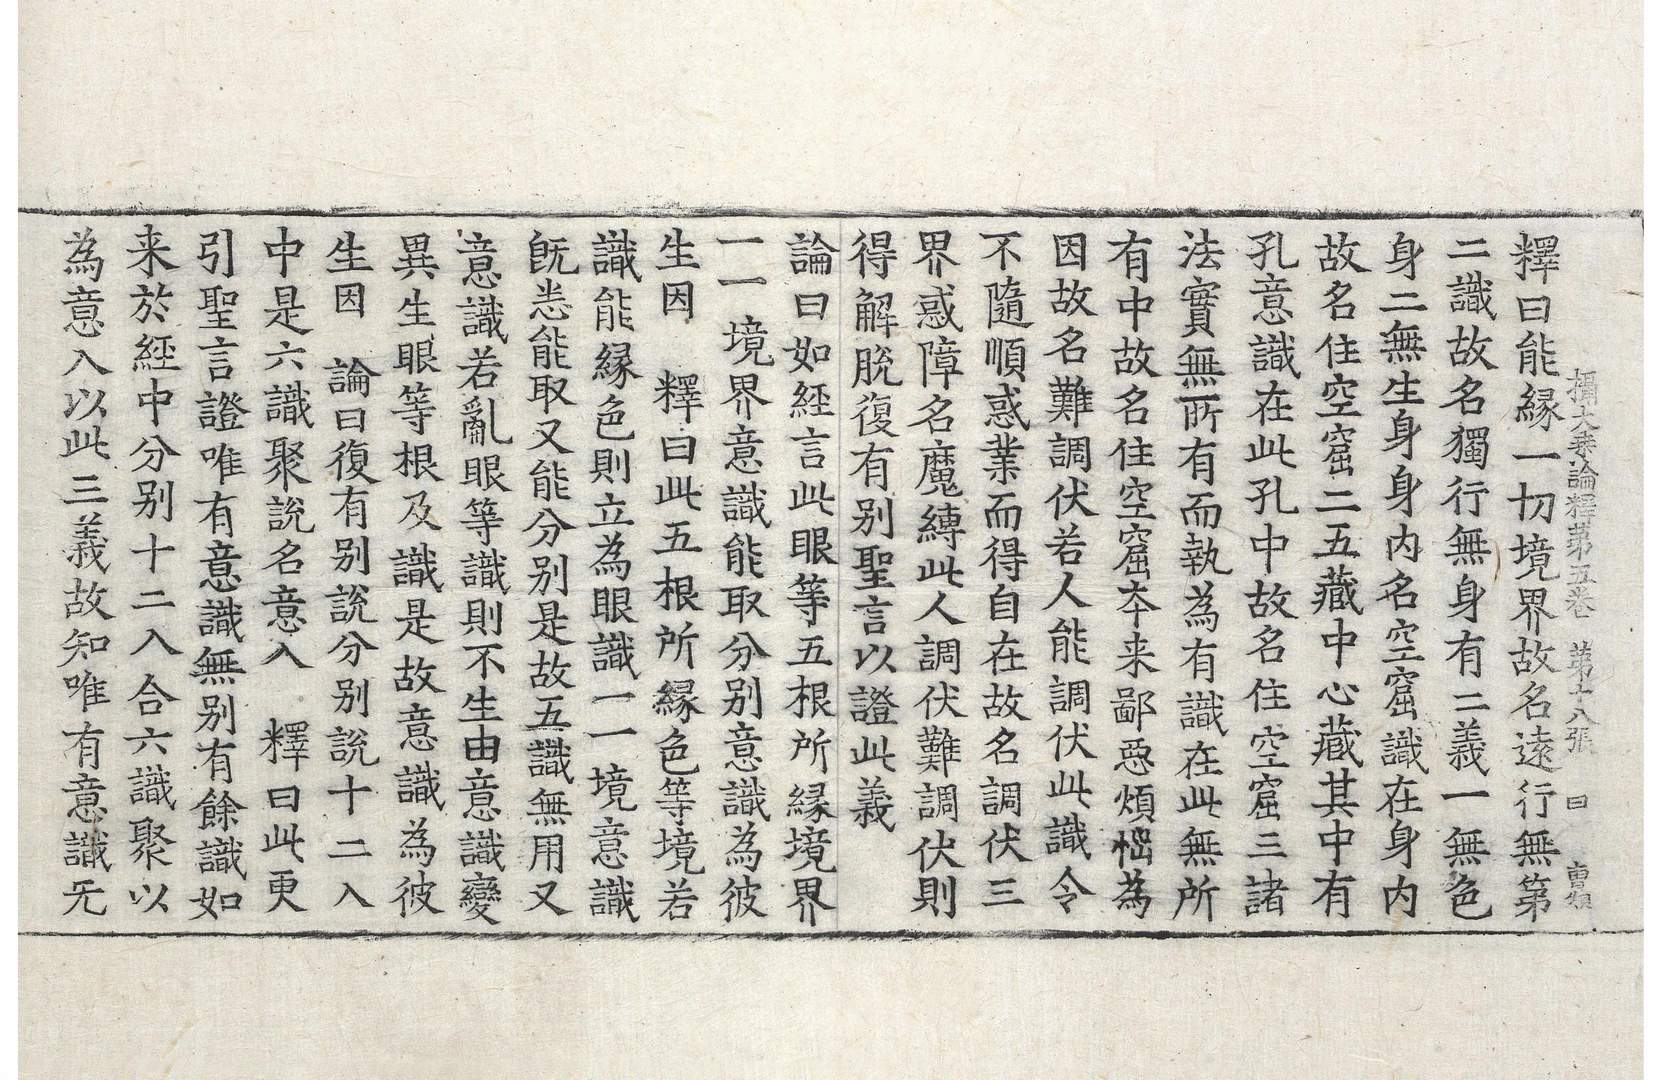 攝大乗論釋第五卷 第十八張 曰
釋曰能縁一切境界故名遠行無第
二識故名獨行無身有二義一無色
身二無生身身內名空窟識在身內
故名住空窟二五藏中心藏其中有
孔意識在此孔中故名住空窟三諸
法實無所有而執為有識在此無所
有中故名住空窟夲来鄙惡煩惱為
因故名難調伏若人能調伏此識令
不隨順惑業而得自在故名調伏三
界惑障名魔縛此人調伏難調伏則
得解脫復有別聖言以證此義
論曰如經言此眼等五根所縁境界
一一境界意識能取分別意識為彼
生因 釋曰此五根所縁色等境若
識能縁色則立為眼識一一境意識
旣悉能取又能分別是故五識無用又
意識若亂眼等識則不生由意識變
異生眼等根及識是故意識為彼
生因 論曰復有別說分別說十二入
中是六識聚說名意入 釋曰此更
引聖言證唯有意識無別有餘識如
来於經中分別十二入合六識聚以
為意入以此三義故知唯有意識无